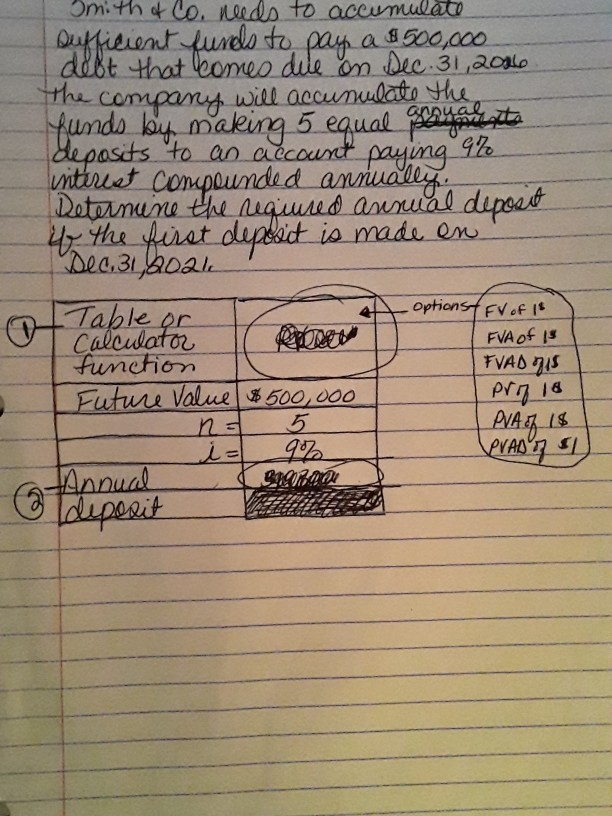 Smith & Co. needs to accumulate
sufficient funds to pay a $500,000
debt that comes due on Dec. 31, 2026
the company will accumulate the
funds by making 5 equal annual
deposits to an account paying 9%
interest compounded annually.
Determine the required annual deposit
if the first deposit is made on
Dec. 31, 2021.
① Table or Calculator function
options
FV of 1$
FVA of 1$
FVAD of 1$
PV of 1$
PVA of 1$
PVAD of $1
Future Value $500,000
n = 5
i = 9%
② Annual deposit